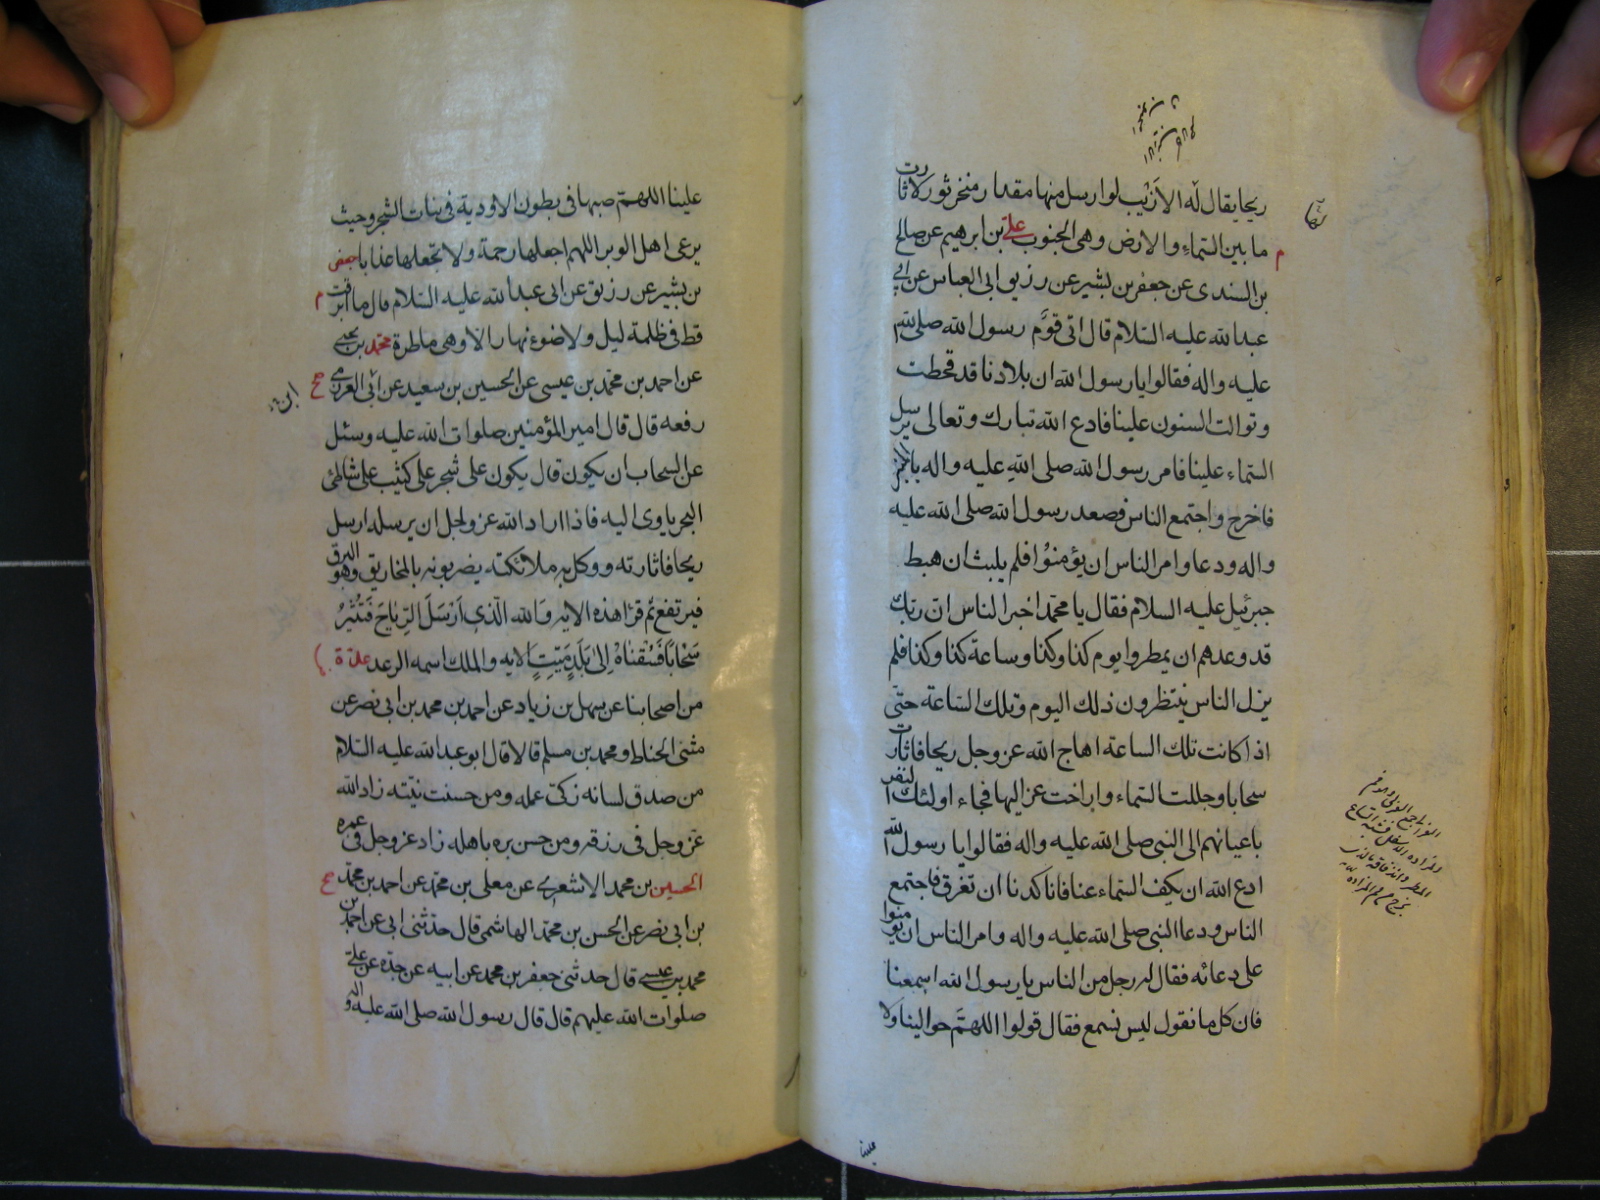 ريحا يقال له الازيب لو ارسل منها مقدار منخر ثور لاثارت
ما بين السماء والارض وهى الجنوب على بن ابرهيم عن صالح
بن السندى عن جعفر بن بشير عن رزيق ابى العباس عن ابى
عبد الله عليه السلام قال اتى قوم رسول الله صلى الله
عليه واله فقالوا يا رسول الله ان بلادنا قد قحطت
وتوالت السنون علينا فادع الله تبارك وتعالى يرسل
السماء علينا فامر رسول الله صلى الله عليه واله بالمنبر
فاخرج واجتمع الناس فصعد رسول الله صلى الله عليه
واله ودعا وامر الناس ان يؤمنوا فلم يلبث ان هبط
جبرئيل عليه السلام فقال يا محمد اخبر الناس ان ربك
قد وعدهم ان يمطروا يوم كذا وكذا وساعة كذا وكذا فلم
يزل الناس ينتظرون ذلك اليوم وتلك الساعة حتى
اذا كانت تلك الساعة اهاج الله عز وجل ريحا فاثارت
سحابا وجللت السماء وارخت عزاليها فجاء اولئك النفر
باعيانهم الى النبى صلى الله عليه واله فقالوا يا رسول الله
ادع الله ان يكف السماء عنا فانا كدنا ان نغرق فاجتمع
الناس ودعا النبى صلى الله عليه واله وامر الناس ان يؤمنوا
على دعائه فقال له رجل من الناس يا رسول الله اسمعنا
فان كل ما نقول ليس نسمع فقال قولوا اللهم حوالينا ولا
علينا
علينا اللهم صبها فى بطون الاودية فى نبات الشجر وحيث
يرعى اهل الوبر اللهم اجعلها رحمة ولا تجعلها عذابا جعفر
بن بشير عن رزيق عن ابى عبد الله عليه السلام قال ما ابرقت
قط فى ظلمة ليل ولا ضوء نهار الا وهى ماطرة محمد بن يحيى
عن احمد بن محمد بن عيسى عن الحسين بن سعيد عن ابى العرزمى
رفعه قال قال امير المؤمنين صلوات الله عليه وسئل
عن السحاب اين يكون قال يكون على شجر على كثيب على شاطئ
البحر ياوى اليه فاذا اراد الله عز وجل ان يرسله ارسل
ريحا فاثارته ووكل به ملائكته يضربونه بالمخاريق وهو البرق
فيرتفع ثم قرا هذه الايه وَالله الَّذِي اَرْسَلَ الرِّيَاحَ فَتُثِيْرُ
سَحَابًا فَسُقْنَاهُ اِلىٰ بَلَدٍ مَيِّتٍ الايه والملك اسمه الرعد عدة
من اصحابنا عن سهل بن زياد عن احمد بن محمد بن ابى نصر عن
مثنى الحناط ومحمد بن مسلم قالا قال ابو عبد الله عليه السلام
من صدق لسانه زكت عمله ومن حسنت نيته زاد الله
عز وجل فى رزقه ومن حسن بره باهله زاد عز وجل فى عمره
الحسين بن محمد الاشعرى عن معلى بن محمد عن احمد بن محمد
بن ابى نصر عن الحسن بن محمد الهاشمى قال حدثنى ابى عن احمد بن
محمد بن عيسى قال حدثنى جعفر بن محمد عن ابيه عن جده عن على
صلوات الله عليهم قال قال رسول الله صلى الله عليه واله